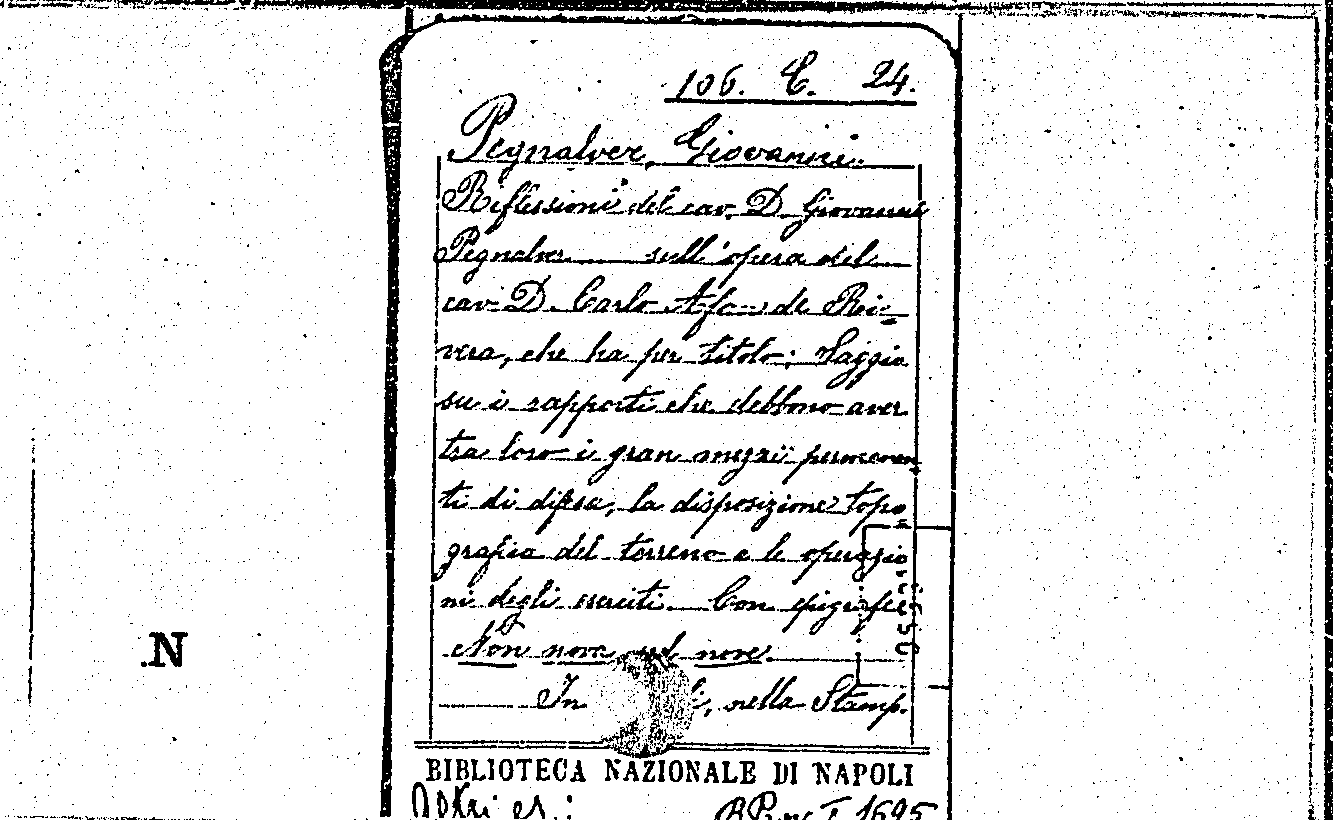 106. C. 24.
Pegnalver, Giovanni.
Riflessioni del cav. D. Giovanni
Pegnalver sull'opera del
cav. D. Carlo Afan de Ri=
vera, che ha per titolo: Saggio
su i rapporti che debbono aver
tra loro i gran mezzi permanen=
ti di difesa, la disposizione topo=
grafica del terreno e le operazio
ni degli eserciti. Con epigrafe:
Non nova sed nove.
In nella Stamp.
BIBLIOTECA NAZIONALE DI NAPOLI
Altri es.:
.N